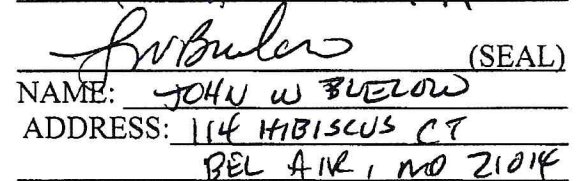 (SEAL)
NAME: JOHN W BUELOW
ADDRESS: 114 HIBISCUS CT
BEL AIR, MD 21014